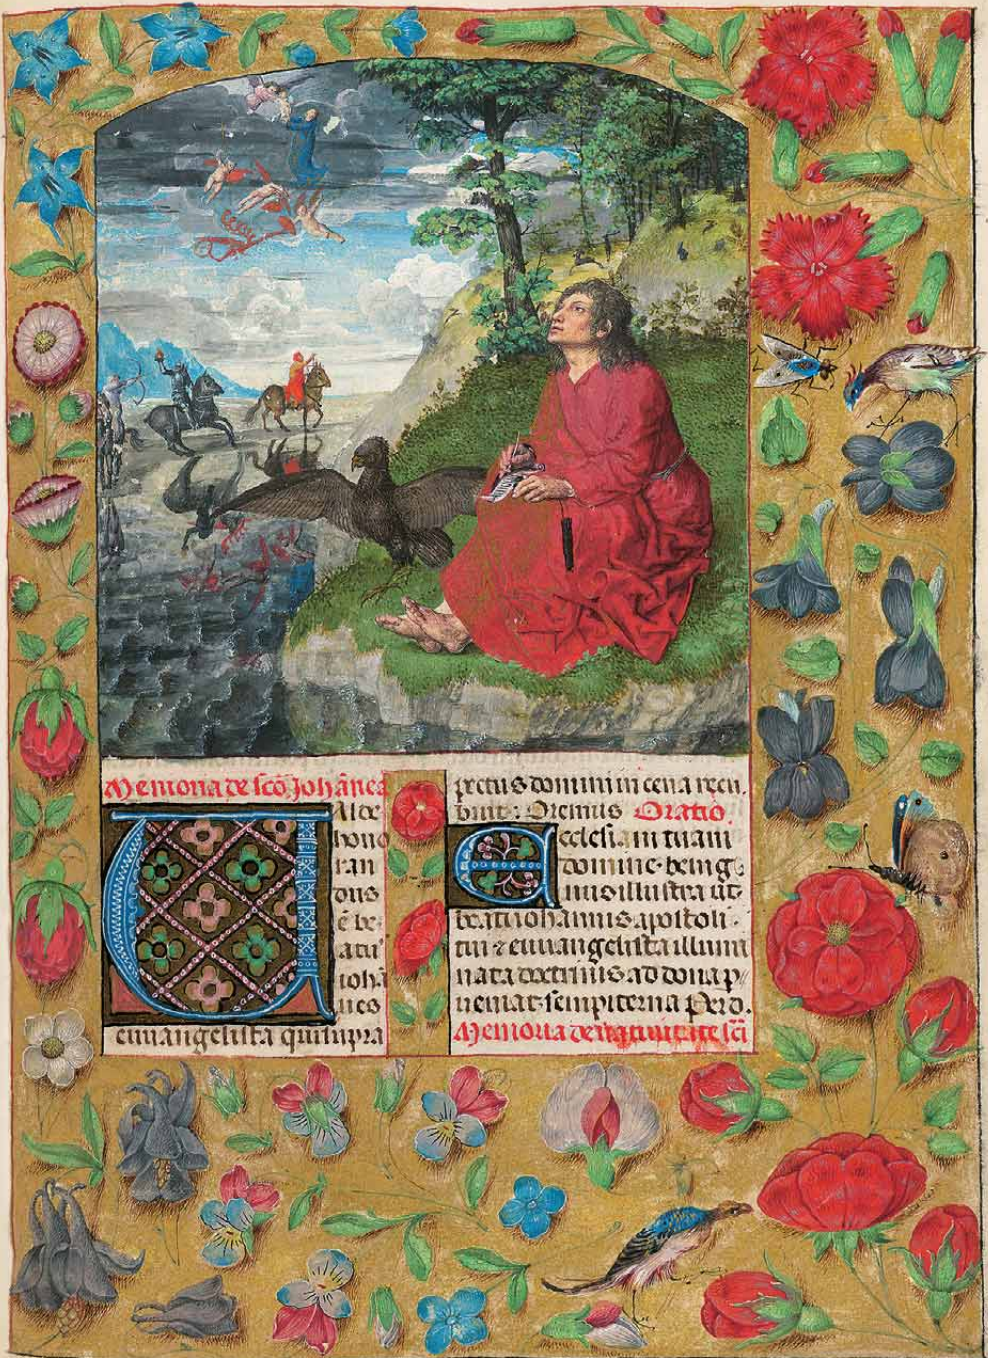 Memoria de sco Johanne
Alde
hono
ran
dus
ē be
atus
iohā
nes
euuangelista qui supra
pectus domini in cena recu
buit: Oremus Oratio.
Ecclesiam tuam
domine benig
nus illustra ut
beati iohannis apostoli
tui ⁊ euuangelista illumi
nata doctrinis ad dona p
ueniat sempiterna Per d.
Memoria de